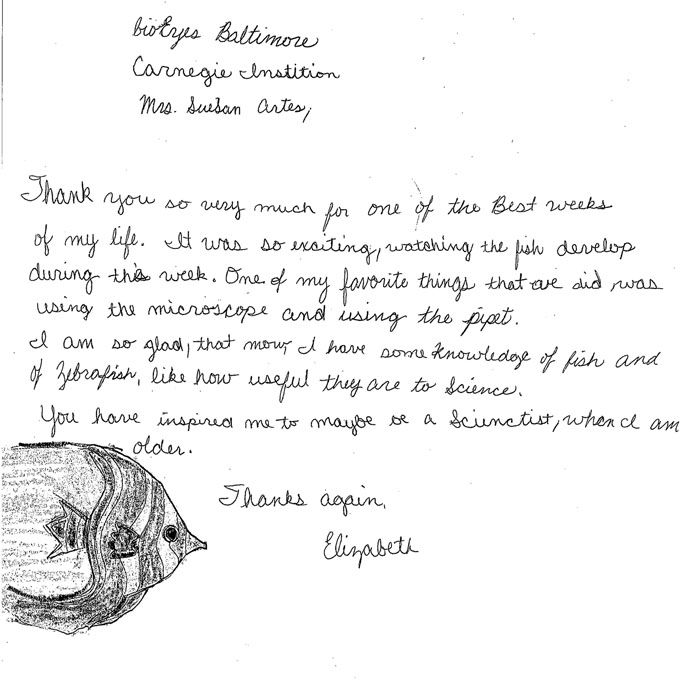 bioEyes Baltimore
Carnegie Instition
Mrs. SueSan Artes,
Thank you so very much for one of the Best weeks
of my life. It was so exciting, watching the fish develop
during this week. One of my favorite things that we did, was
using the microscope and using the pipet.
I am so glad, that now, I have some Knowledge of fish and
of Zebrafish, like how useful they are to Science.
You have inspired me to maybe be a Scienctist, when I am
older.
Thanks again,
Elizabeth